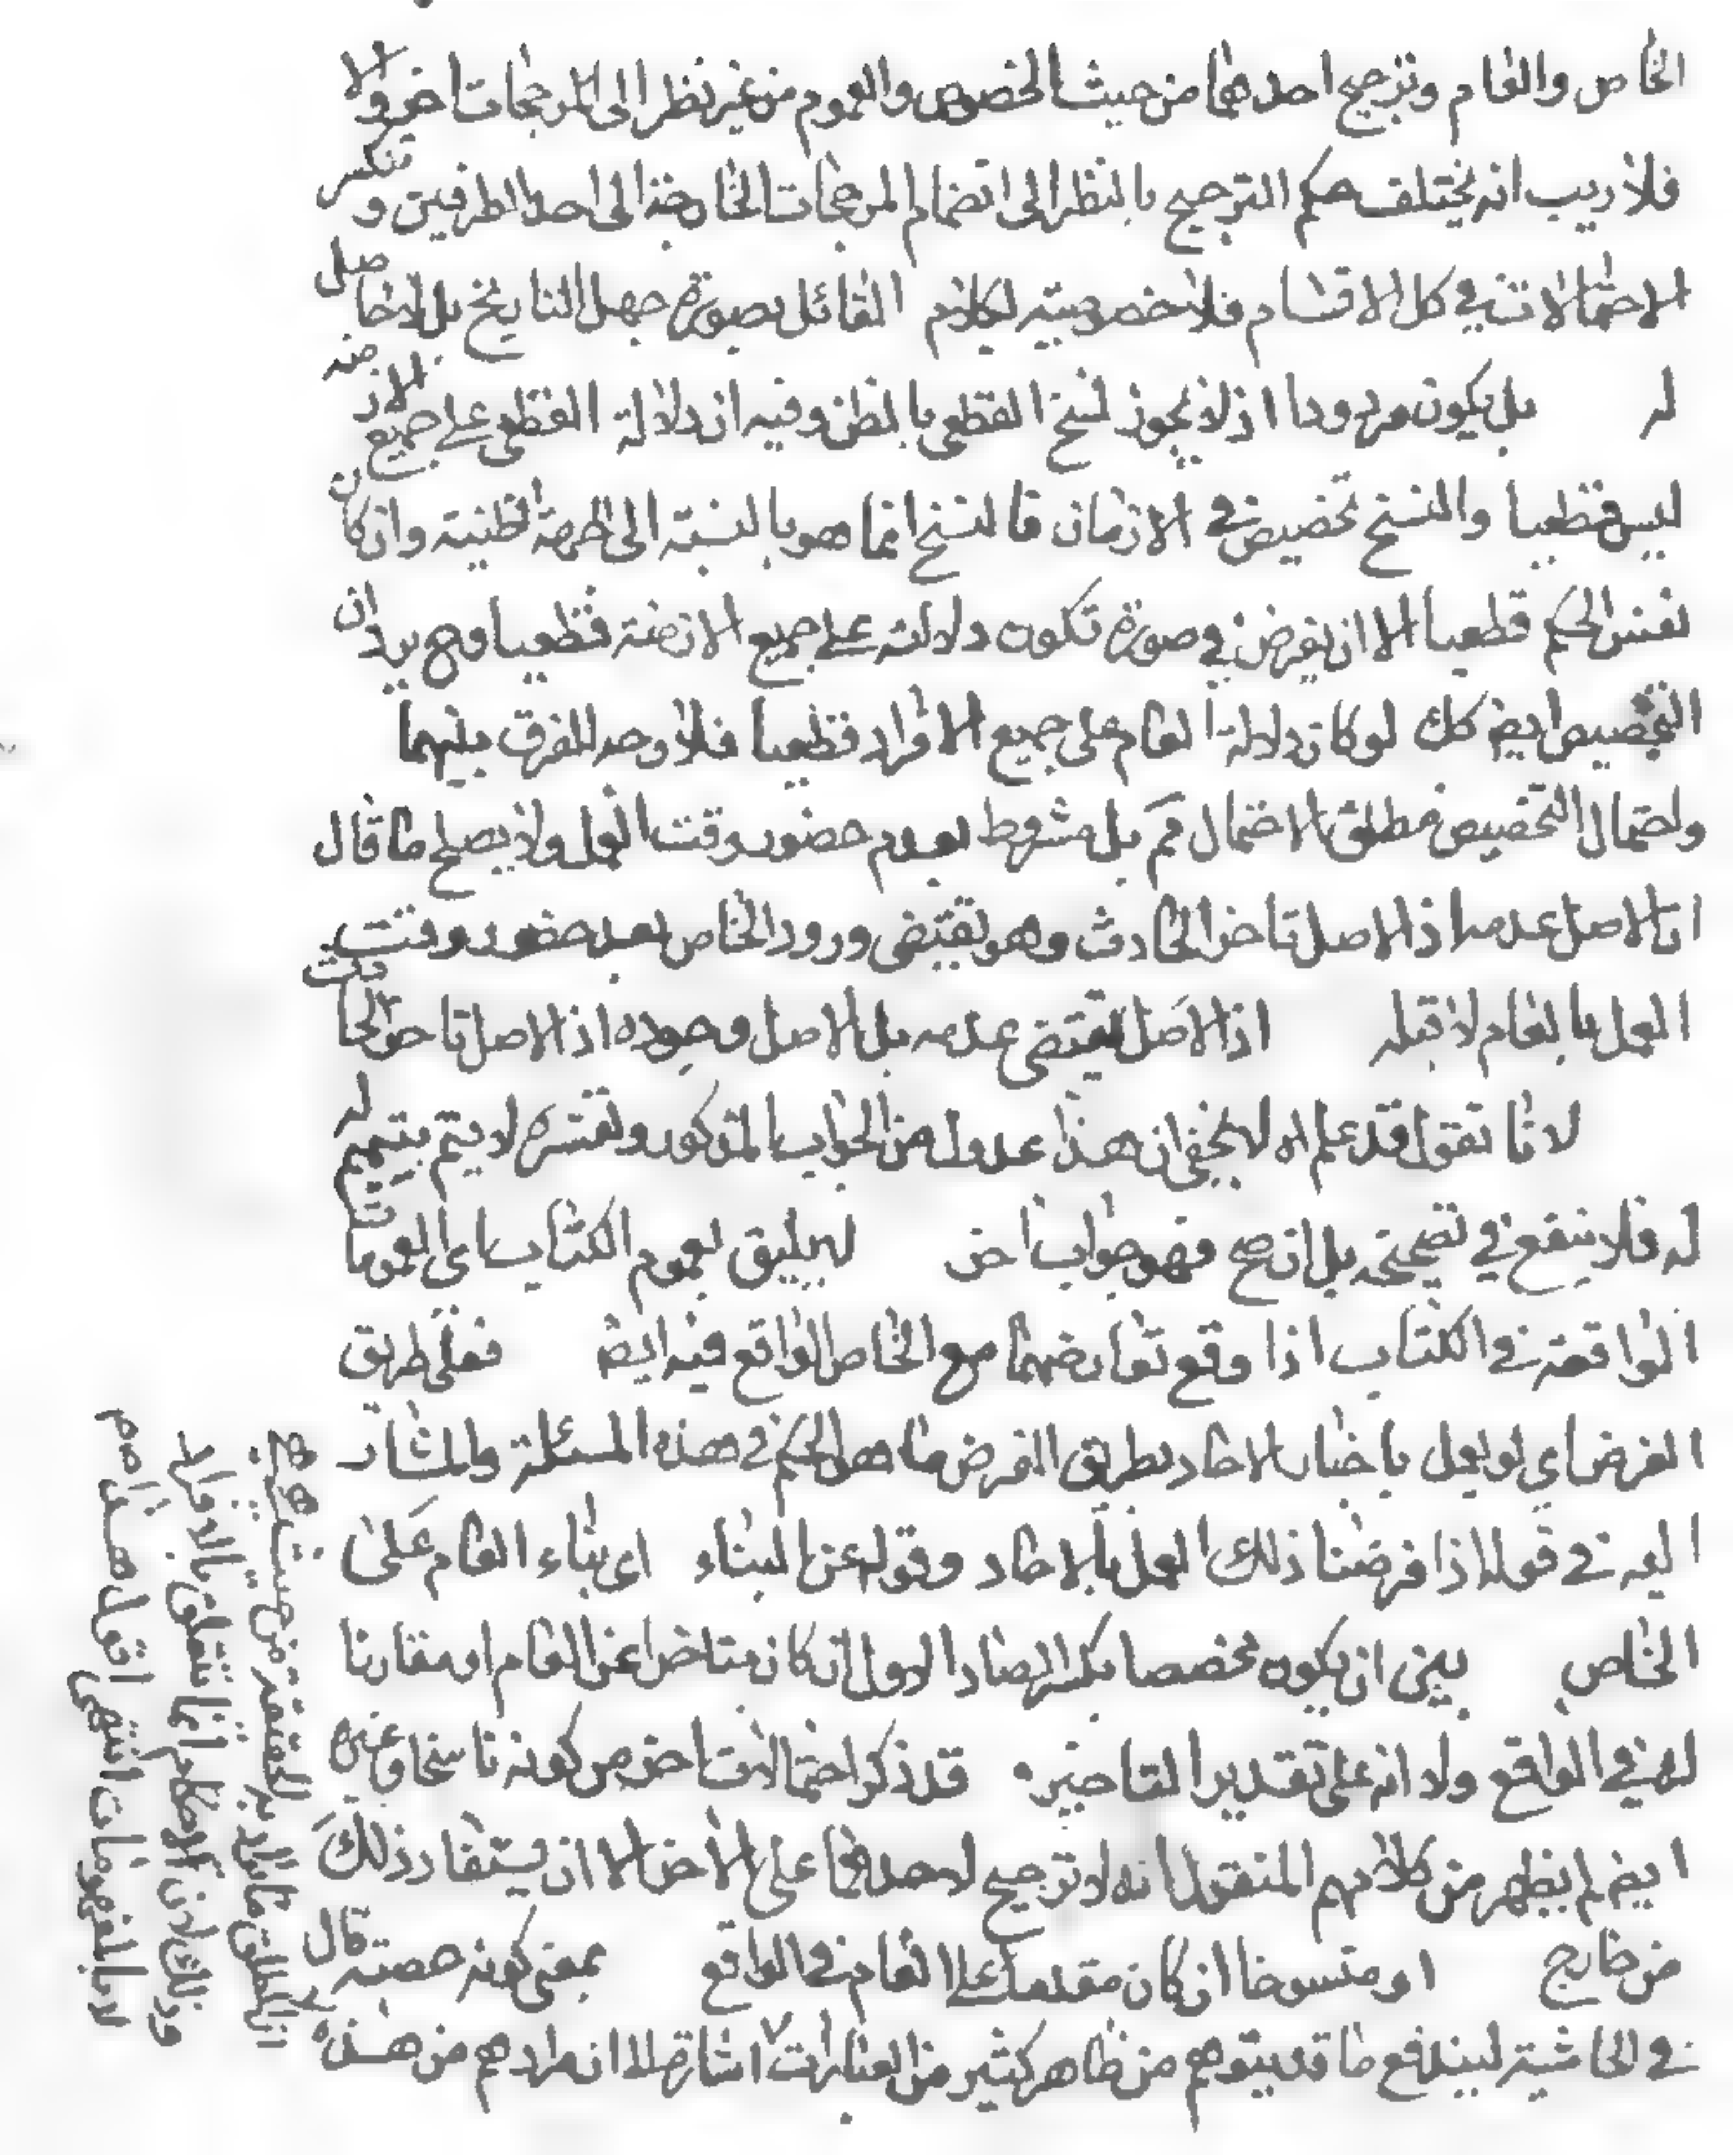 الخاص والعام وترجيح احدهما من حيث الخصوص والعموم من غير نظر الى المرجحات اخر والا
فلا ريب انه يختلف حكم الترجيح بالنظر الى انضمام المرجحات الخارجة الى احد الطرفين وتنكسر
الاحتمالات في كل الاقسام فلا خصوصية لكلام القائل بصورة جهل التاريخ بل لا حاصل
له بل يكون مردودا اذ لا يجوز نسخ القطعى بالظن وفيه ان دلالة القطعى على جميع الازمنه
ليس قطعيا والنسخ تخصيص في الازمان فالنسخ انما هو بالنسبة الى الجهة الظنية وان كان
نفس الحكم قطعيا الا ان يفرض في صورة تكون دلالته على جميع الازمنة قطعيا وح يرد ان
التخصيص ايض كك لو كان دلالة العام على جميع الافراد قطعيا فلا وجه للفرق بينهما
واحتمال التخصيص مطلق الاحتمال مم بل مشروط بعدم حضور وقت العمل ولا يصلح ما قال
ان الاصل عدمه اذ الاصل تاخر الحادث وهو يقتضى ورود الخاص بعد حضور وقت
العمل بالعام لا قبله اذ الاصل يقتضى عدمه بل الاصل وجوده اذ الاصل تاخر الحادث
لانا نقول قد علم اه لا يخفى ان هذا عدول من الجواب المذكور ولا يتم بتتميم له
له فلا ينفع في تصحيحه بل ان صح فهو جواب اخر لا يليق بعموم الكتاب اى العمومات
الواقعة في الكتاب اذا وقع تعارضهما مع الخاص الواقع فيه ايض فعلى طريق
الفرض اي لو يعمل باخبار الاحاد بطريق الفرض ما هو الحكم في هذه المسئلة والمشار
اليه في قوله اذا فرضنا ذلك العمل بالاحاد وقوله عن البناء اى بناء العام على
الخاص بين ان يكون مخصصا بكسر الصاد الاول ان كان متاخرا عن العام او مقارنا
له في الواقع ولا انه على تقدير التاخير قد ذكر احتمالات اخر من كونه ناسخا وغيره
ايض لم يظهر من كلامهم المنقول انه لا ترجيح لاحدهما على الاخر الا ان يستفاد ذلك
من خارج او منسوخا ان كان مقدما على العام في الواقع بمعنى كونه حصته قال
في الحاشية ليندفع ما قد يتوهم من ظاهر كثير من العبارات اشارة الى ان مرادهم من هذه
ان المطلق ما يراد به الحقيقة من حيث هي هي
وذلك لان الاحكام انما تتعلق بالافراد
لا بالمفهومات انتهى اقول هذا هم